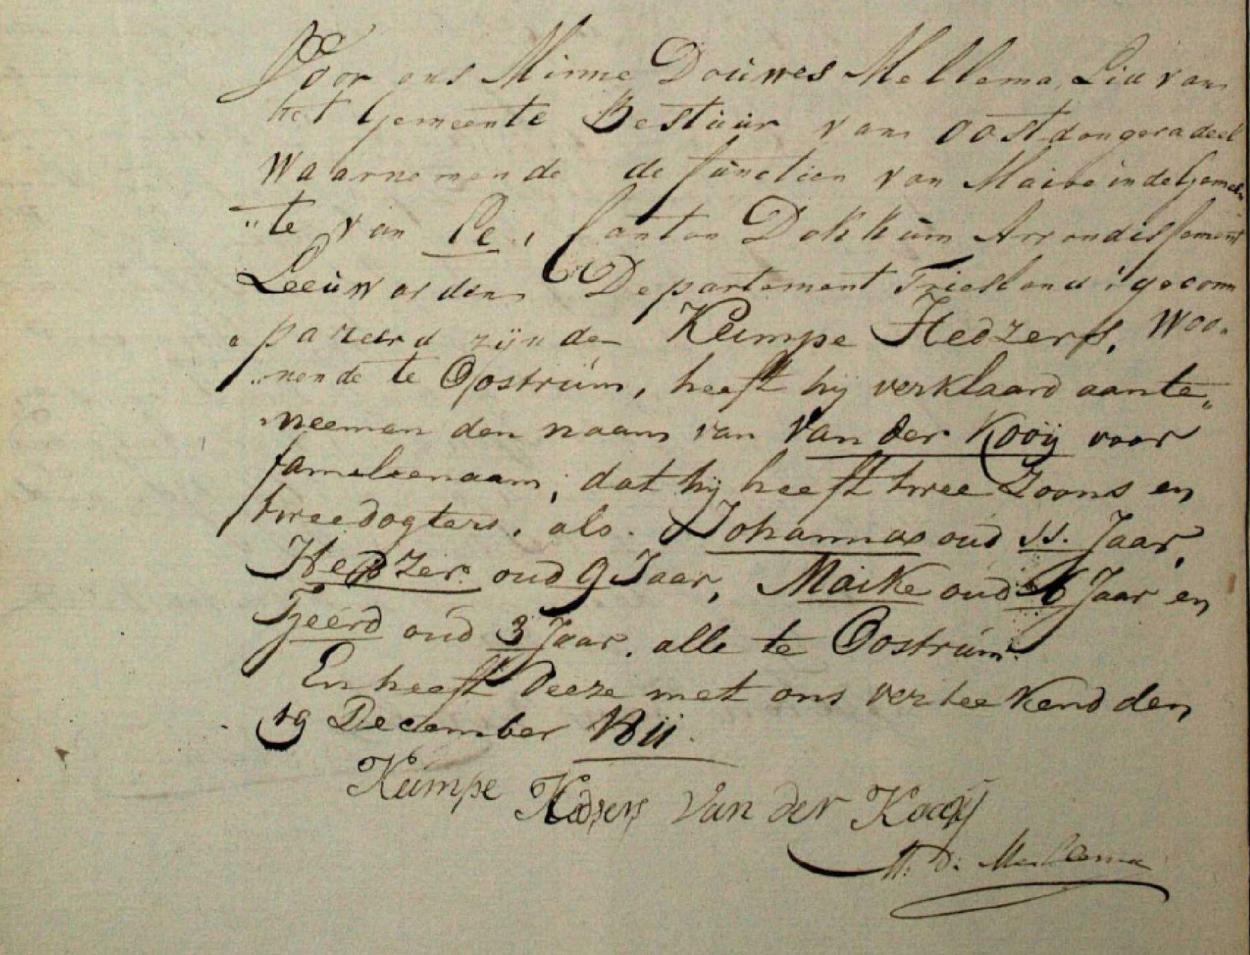 Voor ons Minne Douwes Mellema, Lid van
het Gemeente Bestuur van Oostdongeradeel
Waarnemende de functien van Maire in de Gemeen
"te van Ee, Canton Dokkum Arrondissement
Leeuwarden Departement Friesland; gecom
pareerd zijnde Kumpe Hedzers, Woo-
"nende te Oostrum, heeft hij verklaard aante„
neemen den naam van Van der Kooij voor
fameleenaam, dat hij heeft twee Zoons en
twee dogters, als. Johannes oud 11. Jaar,
Hedzer oud 9 Jaar, Maike oud 6 Jaar en
Tjeerd oud 3 Jaar. alle te Oostrum.
En heeft deeze met ons verteekend den
19 December 1811.
Kumpe Hedsers Van der Kooij
M. D. Mellema